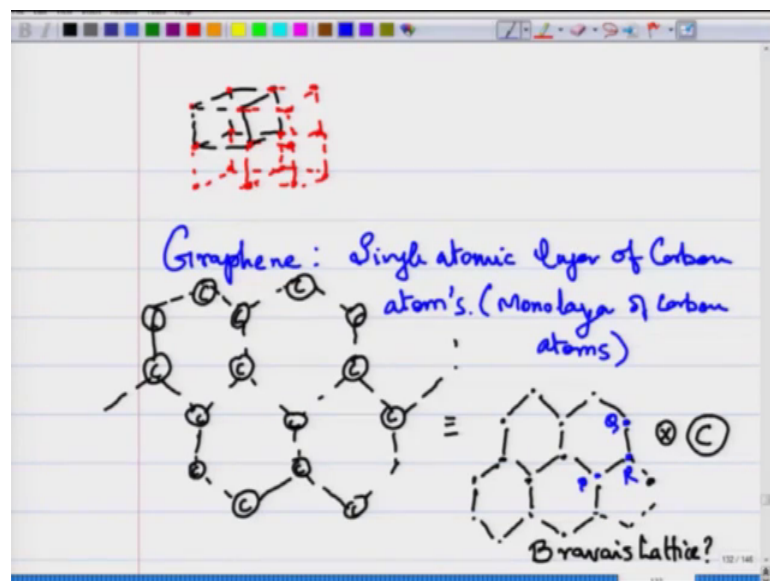 Graphene: Single atomic layer of Carbon
atom's. (Monolaya of carbon
atoms)
C C
C C C
C C C
C C C
≡ Q ⊗ C
P R
C C
C C
Bravais Lattice?
132 / 146